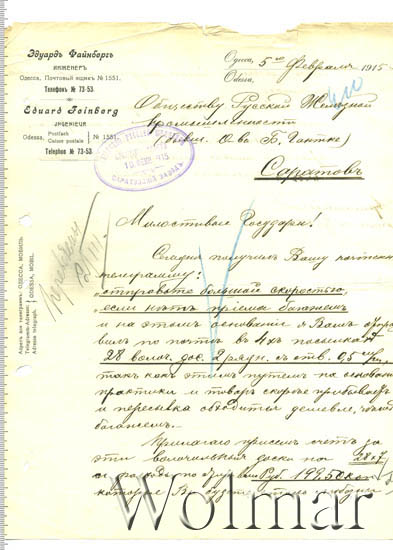 Эдуардъ Файнбергъ
ИНЖЕНЕРЪ
Одесса, Почтовый ящикъ № 1551.
Телефонъ № 73-53.
Eduard Feinberg
INGENIEUR
Odessa, Postfach
Casier postale № 1551.
Telephon № 73-53.
Одесса, 5го Февраля 1915
Odessa,
Обществу Русской Желѣзной
промышленности
(бывш. О-ва Б. Гантке)
Саратовъ
САРАТОВСКІЙ ЗАВОДЪ
Милостивые Государи!
Сегодня получилъ Вашу
телеграмму:
„отправьте большой скоростью,
если нѣтъ пріема багажемъ
и на этомъ основаніи я Вамъ
по почтѣ въ 4хъ посылкахъ
28 волоч. дос. 2 рядн. съ отв. 0,5
такъ какъ этимъ путемъ на основаніи
практики и товаръ скорѣе прибываетъ
и пересылка обходится дешевле, чѣмъ
багажемъ.
Прилагаю при семъ счетъ за
эти волочильныя доски на 28х7
Руб. 199.50 коп
которые Вы
Адресъ для телеграммъ: ОДЕССА, МОБИЛЬ.
Telegramm-Adresse:
Adresse télégraph.
ODESSA, MOBIL.
Wolmar